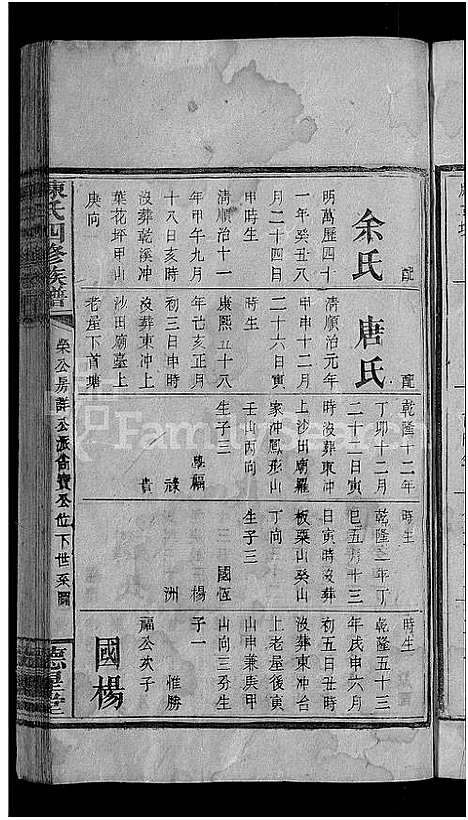 配
余氏
明萬歷四十
一年癸丑八
月二十四日
申時生
清順治十一
年甲午九月
十八日亥時
沒葬乾溪冲
葉花坪甲山
庚向
配
唐氏
清順治元年
甲申十二月
二十六日寅
時生
康熙五十八
年己亥正月
初三日申時
沒葬東冲上
沙田廟臺上
老屋下首塘
乾隆十二年
丁卯十二月
二十二日寅
時沒葬東冲
上沙田廟羅
家冲鳳形山
壬山丙向
生子三
福
祿
貴
時生
乾隆二年丁
巳五月十三
日寅時沒葬
板栗山癸山
丁向
生子三
國恆
楊
洲
時生
乾隆五十三
年戊申六月
初五日丑時
沒葬東冲台
上老屋後寅
山申兼庚甲
山向三男生
子一
惟勝
福公次子
國楊
陳氏四修族譜
榮公房詳公派
公位下世系圖
德星堂
FamilySearch